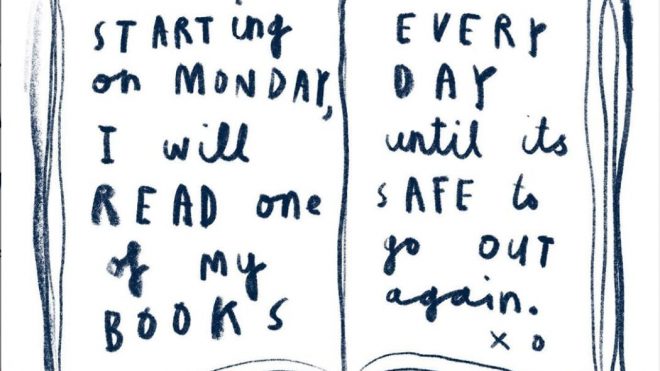 STARTing
on MONDAY,
I will
READ one
of my
BOOKS
EVERY
DAY
until its
SAFE to
go OUT
again.
xo